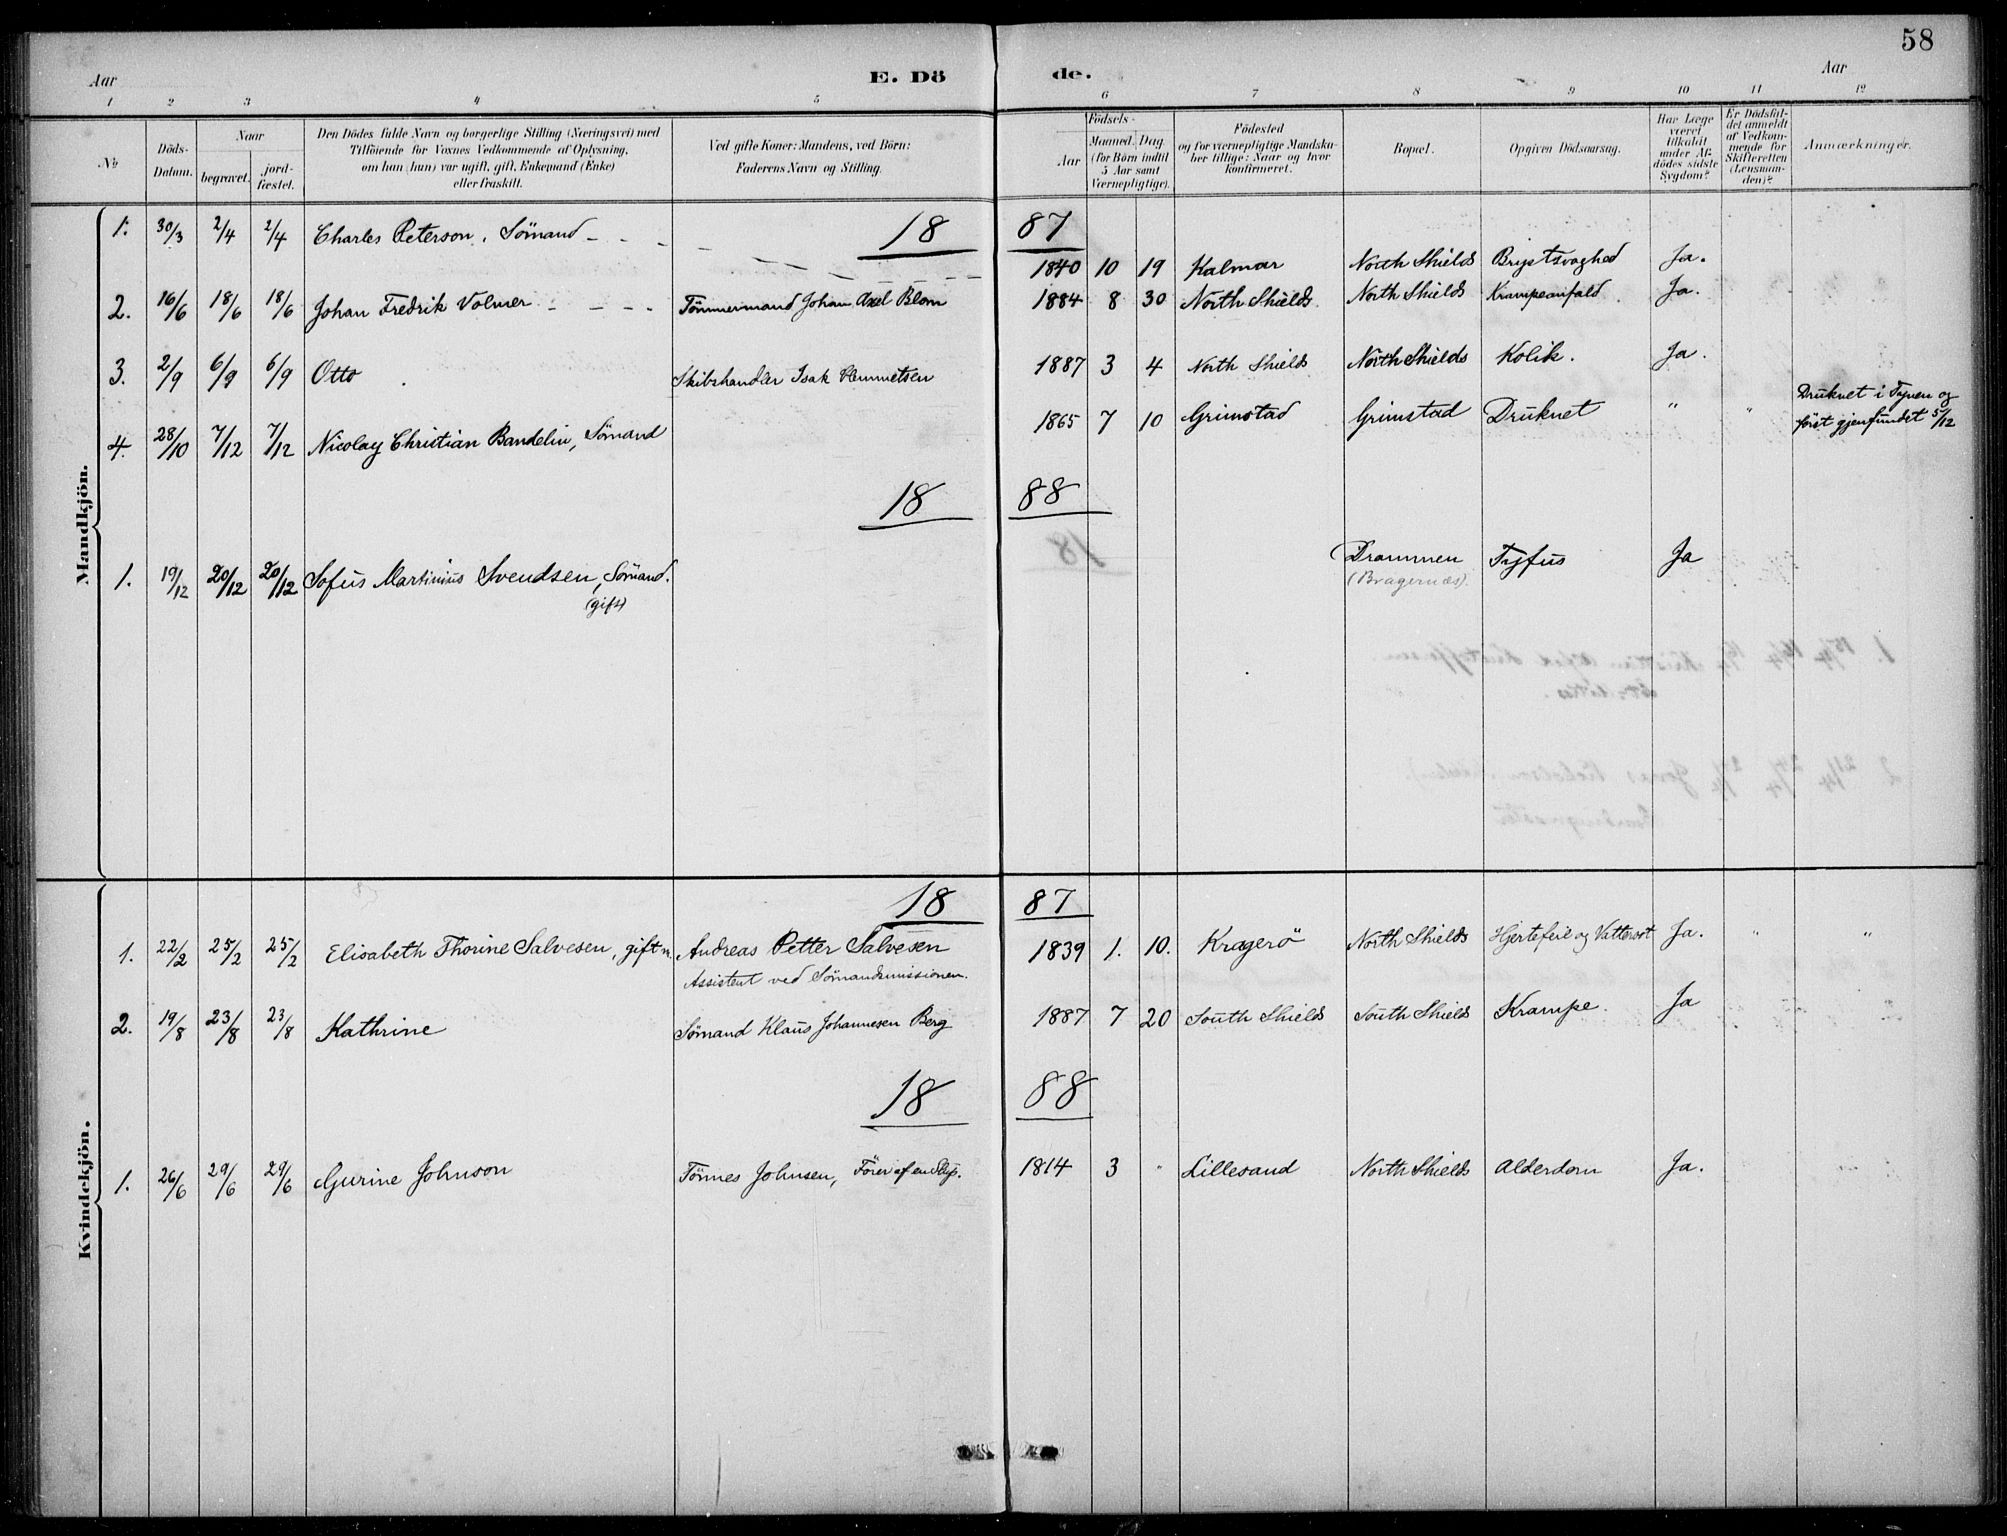 58
Aar
E. Dö
de.
Aar
1 2 3 4 5 6 7 8 9 10 11 12
No
Döds-Datum.
Naar
begravet.
jordfæstet.
Den Dödes fulde Navn og borgerlige Stilling (Næringsvei) med
Tilföiende for Voxnes Vedkommende af Oplysning,
om han (hun) var ugift, gift, Enkemand (Enke)
eller fraskilt.
Ved gifte Koner: Mandens, ved Börn:
Faderens Navn og Stilling.
Födsels-
Aar
Maaned. Dag.
(for Börn indtil
5 Aar samt
Værnepligtige).
Födested
og for værnepligtige Mandskaber tillige: Naar og hvor
konfirmeret.
Bopæl.
Opgiven Dödsaarsag.
Har Læge
været
tilkaldt
under Afdödes sidste
Sygdom?
Er Dödsfaldet anmeldt
af Vedkommende for
Skifteretten
(Lensmanden)?
Anmærkninger.
Mandkjön.
18 87
1. 30/3 2/4 2/4 Charles Peterson, Sömand 1840 10 19 Kalmar North Shields Brystsvaghed Ja.
2. 16/6 18/6 18/6 Johan Fredrik Volmer Tömmermand Johan Axel Blom 1884 8 30 North Shields North Shields Krampeanfald Ja.
3. 2/9 6/9 6/9 Otto Skibshandler Isak Clemmetsen 1887 3 4 North Shields North Shields Kolik. Ja.
4. 28/10 7/12 7/12 Nicolay Christian Bandelin, Sömand 1865 7 10 Grimstad Grimstad Druknet " " Druknet i Tynen og
först gjenfundet 5/12
18 88
1. 19/12 20/12 20/12 Sofus Martinius Svendsen, Sömand. Drammen Tyfus Ja
(gift) (Bragernæs)
Kvindekjön.
18 87
1. 22/2 25/2 25/2 Elisabeth Thorine Salvesen, gift m. Andreas Petter Salvesen 1839 1. 10. Kragerö North Shields Hjertefeil og Vattersot Ja. " "
Assistent ved Sömandsmissionen.
2. 19/8 23/8 23/8 Kathrine Sömand Klaus Johannesen Berg 1887 7 20 South Shields South Shields Krampe. Ja
18 88
1. 26/6 29/6 29/6 Gurine Johnson Tönnes Johnsen, Förer af en Slup. 1814 3 " Lillesand North Shields Alderdom Ja.